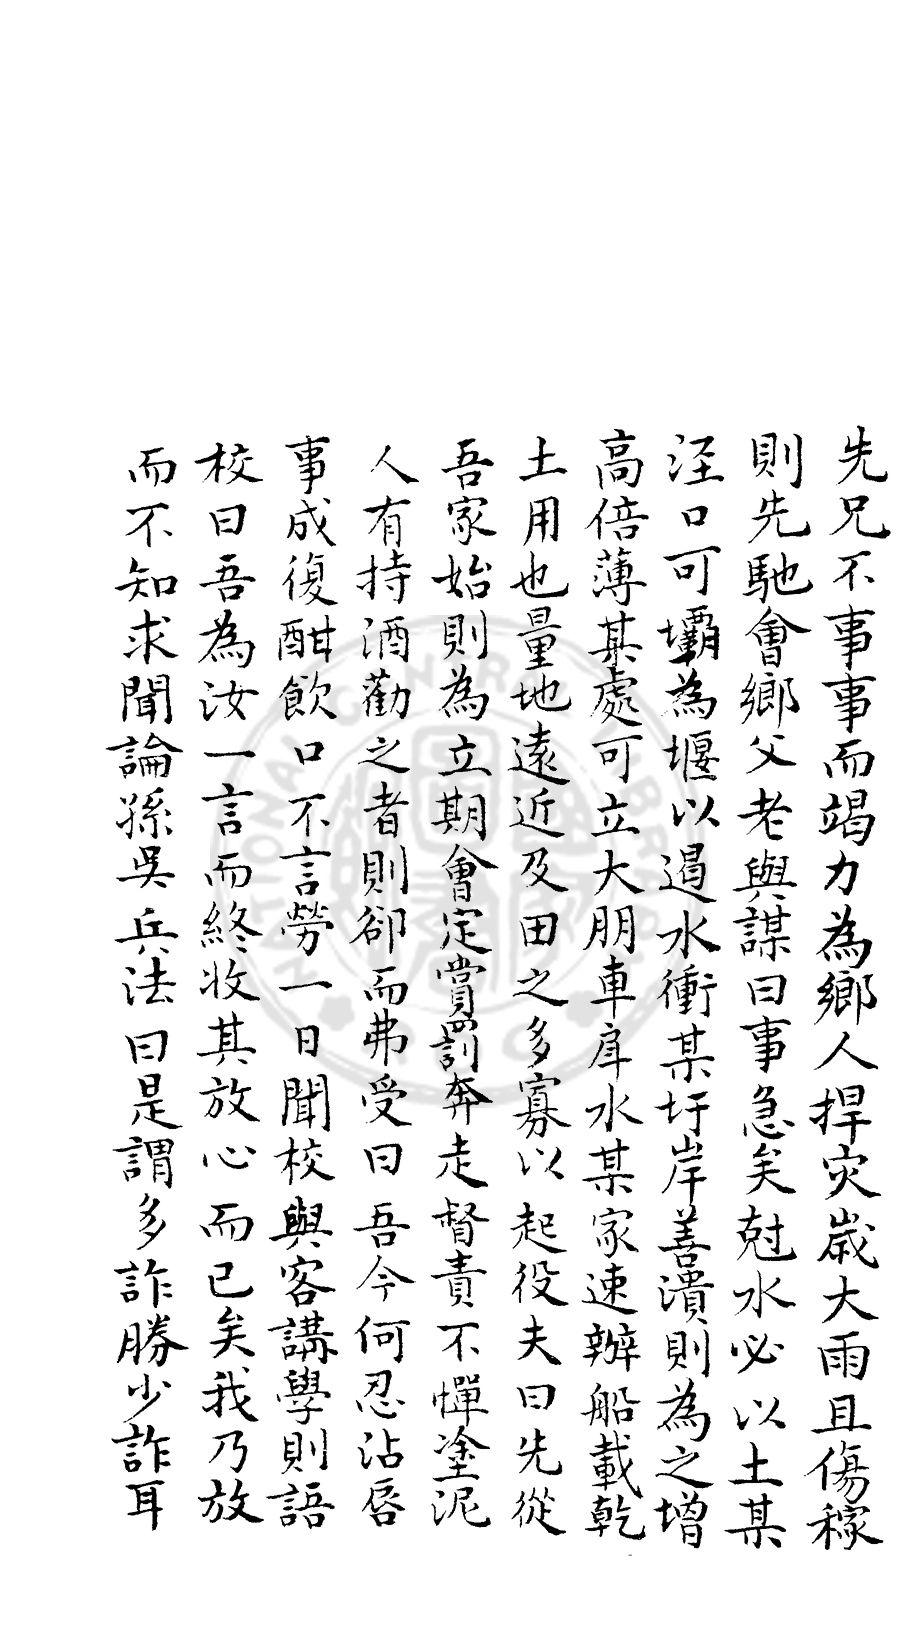 先兄不事事而竭力為鄉人捍灾歲大雨且傷稼
則先馳會鄉父老與謀曰事急矣尅水必以土某
涇口可壩為堰以遏水衝某圩岸善潰則為之增
高倍薄某處可立大朋車戽水某家速辦船載乾
土用也量地遠近及田之多寡以起役夫曰先從
吾家始則為立期會定賞罰奔走督責不憚塗泥
人有持酒勸之者則卻而弗受曰吾今何忍沾唇
事成復酣飲口不言勞一日聞校與客講學則語
校曰吾為汝一言而終收其放心而已矣我乃放
而不知求聞論孫吳兵法曰是謂多詐勝少詐耳
NATIONAL CENTRAL LIBRARY